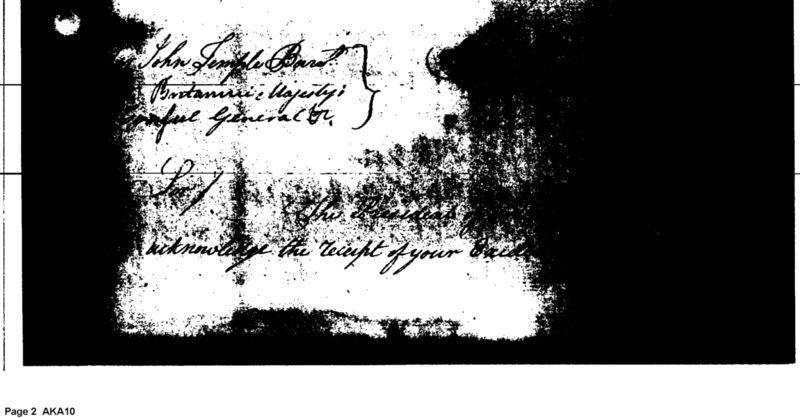 John Temple Baro.t
Britannic Majesty's
onsul General &c.
Sir/
The President
acknowledge the receipt of your
Page 2 AKA10